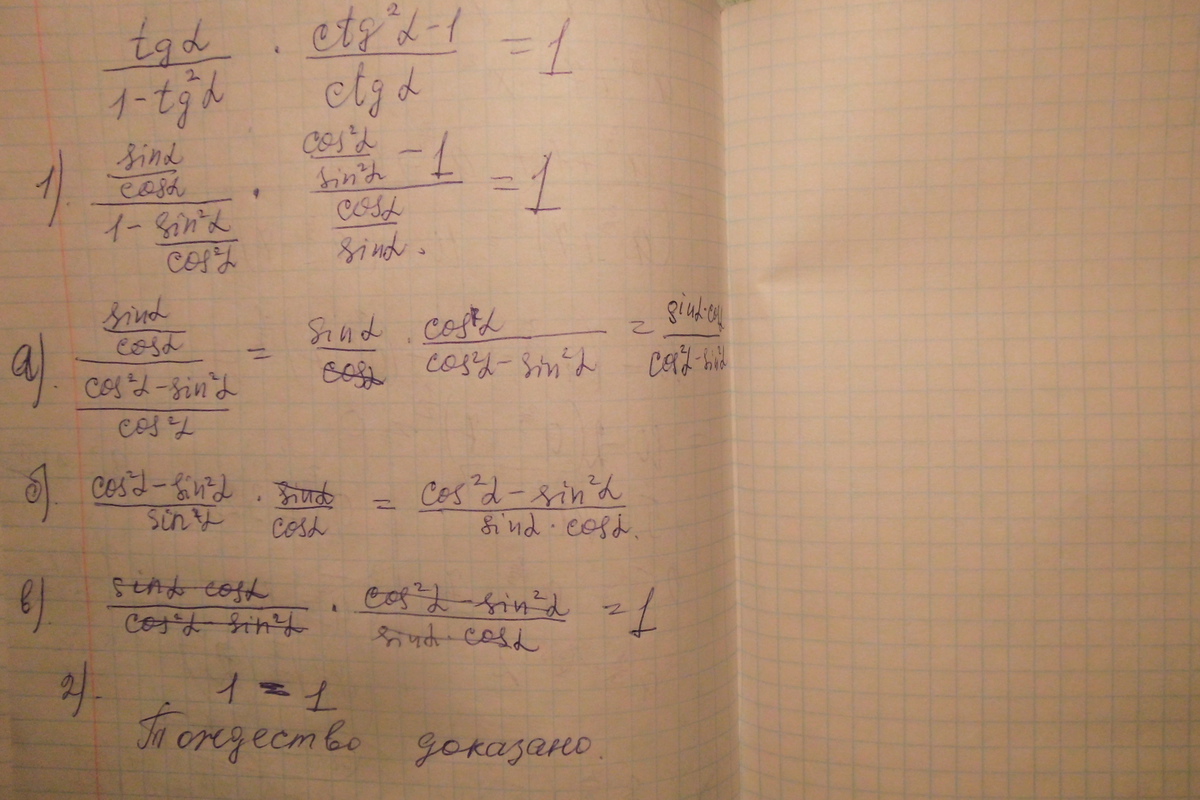 tgα / (1 - tg²α) · (ctg²α - 1) / ctgα = 1
1). (sinα / cosα) / (1 - sin²α / cos²α) · (cos²α / sin²α - 1) / (cosα / sinα) = 1
а). (sinα / cosα) / ((cos²α - sin²α) / cos²α) = sinα / cosα · cos²α / (cos²α - sin²α) = sinα·cosα / (cos²α - sin²α)
б). (cos²α - sin²α) / sin²α · sinα / cosα = (cos²α - sin²α) / (sinα · cosα).
в) sinα cosα / (cos²α - sin²α) · (cos²α - sin²α) / (sinα · cosα) = 1
2). 1 = 1
Тождество доказано.